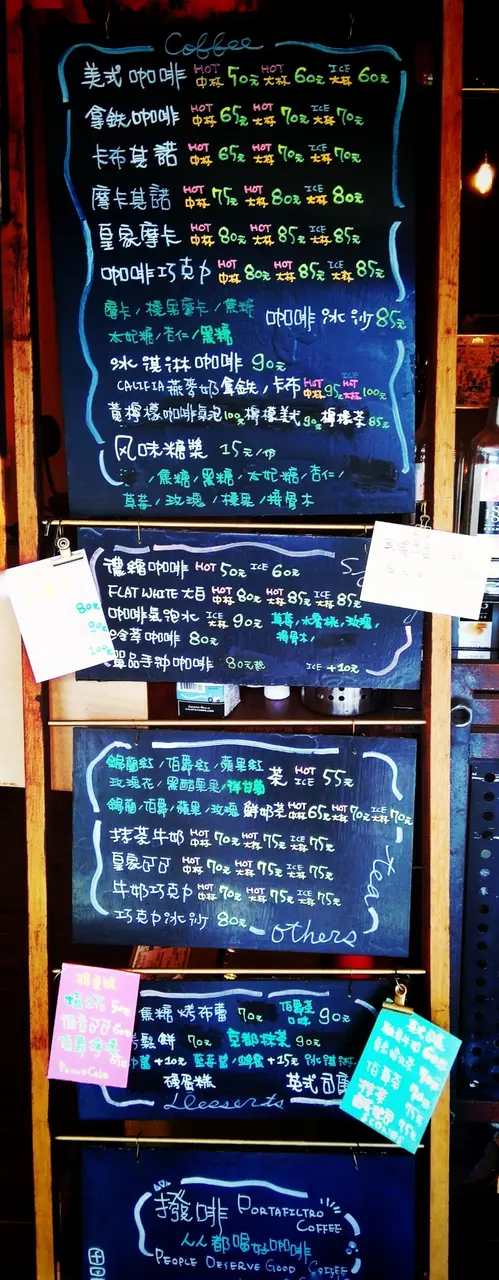 Coffee
美式咖啡 HOT中杯50元 HOT大杯60元 ICE大杯60元
拿鐵咖啡 HOT中杯65元 HOT大杯70元 ICE大杯70元
卡布其諾 HOT中杯65元 HOT大杯70元 ICE大杯70元
摩卡其諾 HOT中杯75元 HOT大杯80元 ICE大杯80元
皇家摩卡 HOT中杯80元 HOT大杯85元 ICE大杯85元
咖啡巧克力 HOT中杯80元 HOT大杯85元 ICE大杯85元
摩卡/榛果摩卡/焦糖
太妃糖/杏仁/黑糖
咖啡冰沙85元
冰淇淋咖啡 90元
CALIFIA燕麥奶拿鐵/卡布 HOT中杯95元 HOT大杯100元
黃檸檬咖啡氣泡100元 檸檬美式90元 檸檬茶85元
风味糖漿 15元/份
焦糖/黑糖/太妃糖/杏仁/
草莓/玫瑰/榛果/接骨木
濃縮咖啡 HOT 50元 ICE 60元
FLAT WHITE 大白 HOT中杯80元 HOT大杯85元 ICE大杯85元
咖啡氣泡水 ICE大杯90元
草莓/水蜜桃/玫瑰/
接骨木/
冷萃咖啡 80元
單品手沖咖啡 80元起 ICE+10元
80元
90元
100元
錫蘭紅/伯爵紅/蘋果紅
玫瑰花/黑醋栗果/洋甘菊
茶 HOT大杯 55元
錫蘭/伯爵/蘋果/玫瑰 鮮奶茶 HOT中杯65元 HOT大杯70元 ICE大杯70元
抹茶牛奶 HOT中杯70元 HOT大杯75元 ICE大杯75元
皇家可可 HOT中杯70元 HOT大杯75元 ICE大杯75元
牛奶巧克力 HOT中杯70元 HOT大杯75元 ICE大杯75元
巧克力冰沙 80元
tea
others
焦糖烤布蕾 70元 伯爵茶口味 90元
鬆餅 70元 京都抹茶 90元
+10元 +15元
磅蛋糕 英式司康
Desserts
50元
60元
65元
Pound Cake
60元
70元
70元
75元
75元
SCONES
撥啡 PORTAFILTRO COFFEE
人人都喝好咖啡
PEOPLE DESERVE GOOD COFFEE